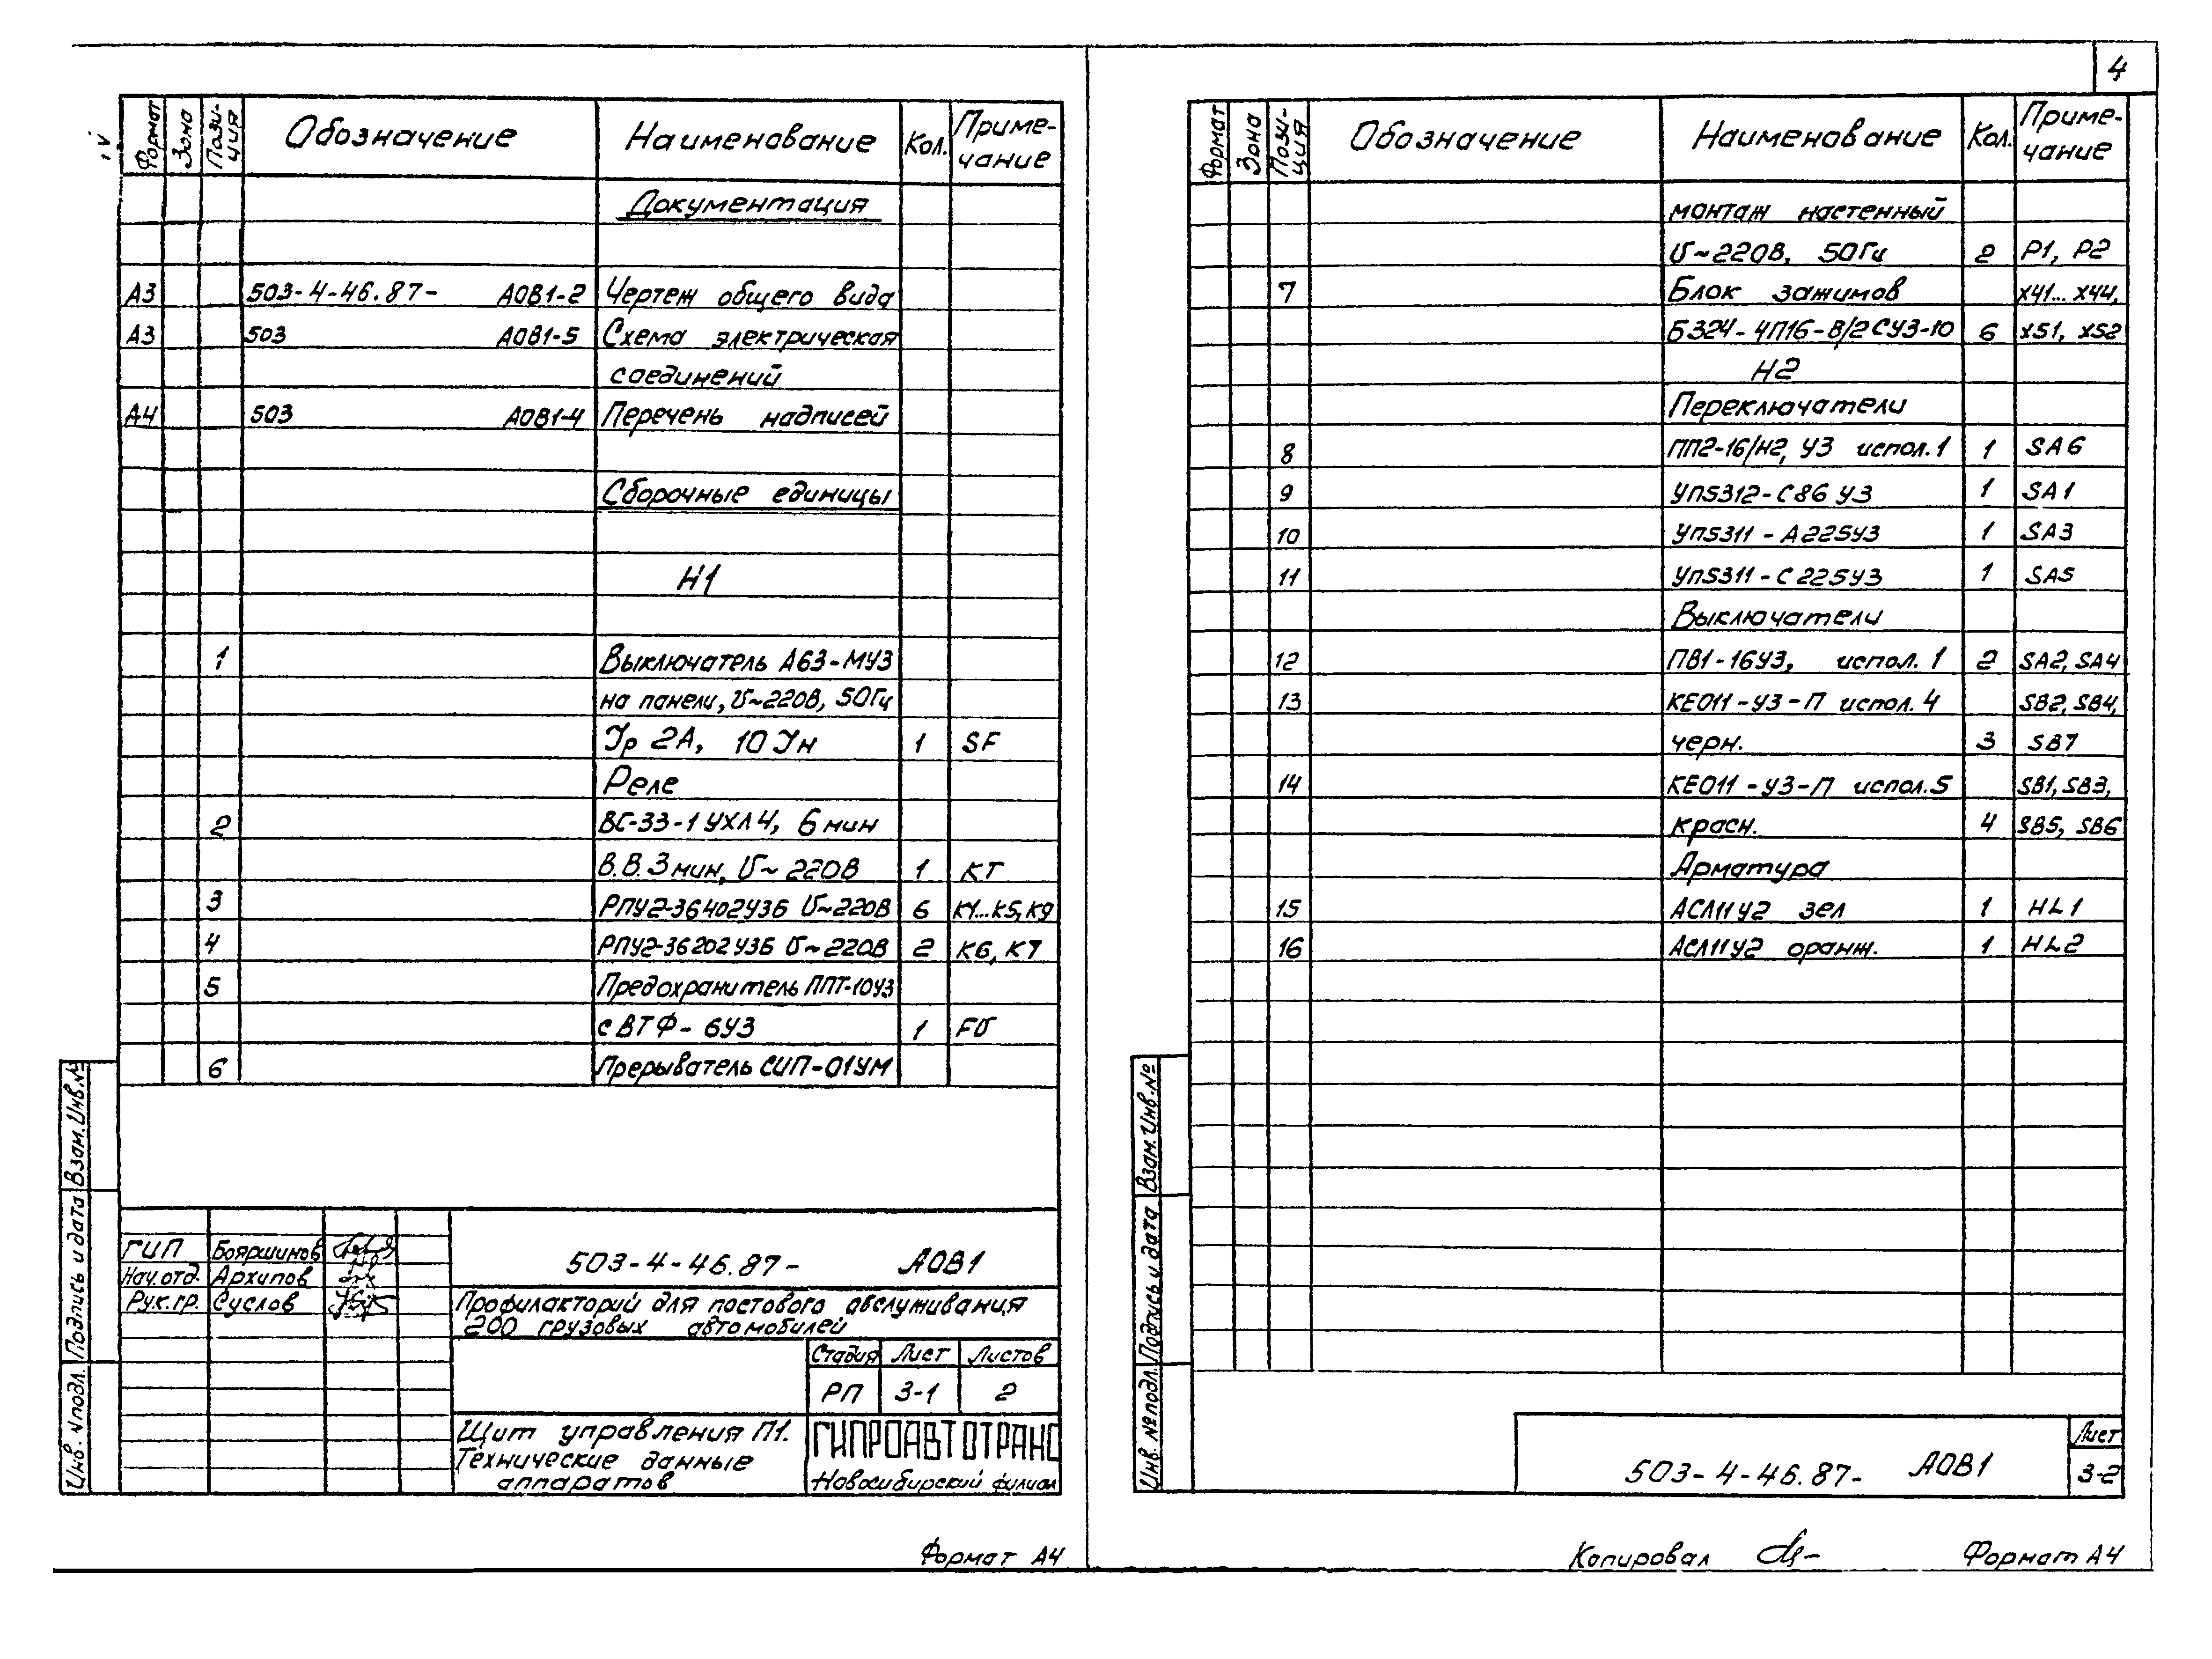 4
Формат Зона Пози-ция Обозначение Наименование Кол. Приме-чание
Документация
А3 503-4-46.87- АОВ1-2 Чертеж общего вида
А3 503 АОВ1-5 Схема электрическая
соединений
А4 503 АОВ1-4 Перечень надписей
Сборочные единицы
Н1
1 Выключатель А63-МУ3
на панели, U~220В, 50Гц
Iр 2А, 10 Iн 1 SF
Реле
2 ВС-33-1 УХЛ4, 6 мин
В.В. 3 мин, U~220В 1 КТ
3 РПУ2-36402У3Б U~220В 6 К1...К5, К9
4 РПУ2-36202У3Б U~220В 2 К6, К7
5 Предохранитель ППТ-10У3
с ВТФ-6У3 1 FU
6 Прерыватель СИП-01УМ
Инв. № подл. Подпись и дата Взам. Инв. №
ГИП Бояршинов
Нач. отд. Архипов
Рук. гр. Суслов
503-4-46.87- АОВ1
Профилакторий для постового обслуживания
200 грузовых автомобилей
Стадия Лист Листов
РП 3-1 2
Щит управления П1.
Технические данные
аппаратов
ГИПРОАВТОТРАНС
Новосибирский филиал
Формат А4
Формат Зона Пози-ция Обозначение Наименование Кол. Приме-чание
монтаж настенный
U~220В, 50Гц 2 Р1, Р2
7 Блок зажимов Х41... Х44,
БЗ24-4П16-В/2СУ3-10 6 Х51, Х52
Н2
Переключатели
8 ПП2-16/Н2, У3 испол. 1 1 SA6
9 УП5312-С86 У3 1 SA1
10 УП5311-А225У3 1 SA3
11 УП5311-С225У3 1 SA5
Выключатели
12 ПВ1-16У3, испол. 1 2 SA2, SA4
13 КЕ011-У3-П испол. 4 SB2, SB4,
черн. 3 SB7
14 КЕ011-У3-П испол. 5 SB1, SB3,
красн. 4 SB5, SB6
Арматура
15 АСЛ11У2 зел 1 HL1
16 АСЛ11У2 оранж. 1 HL2
Инв. № подл. Подпись и дата Взам. Инв. №
503-4-46.87- АОВ1
Лист
3-2
Копировал
Формат А4